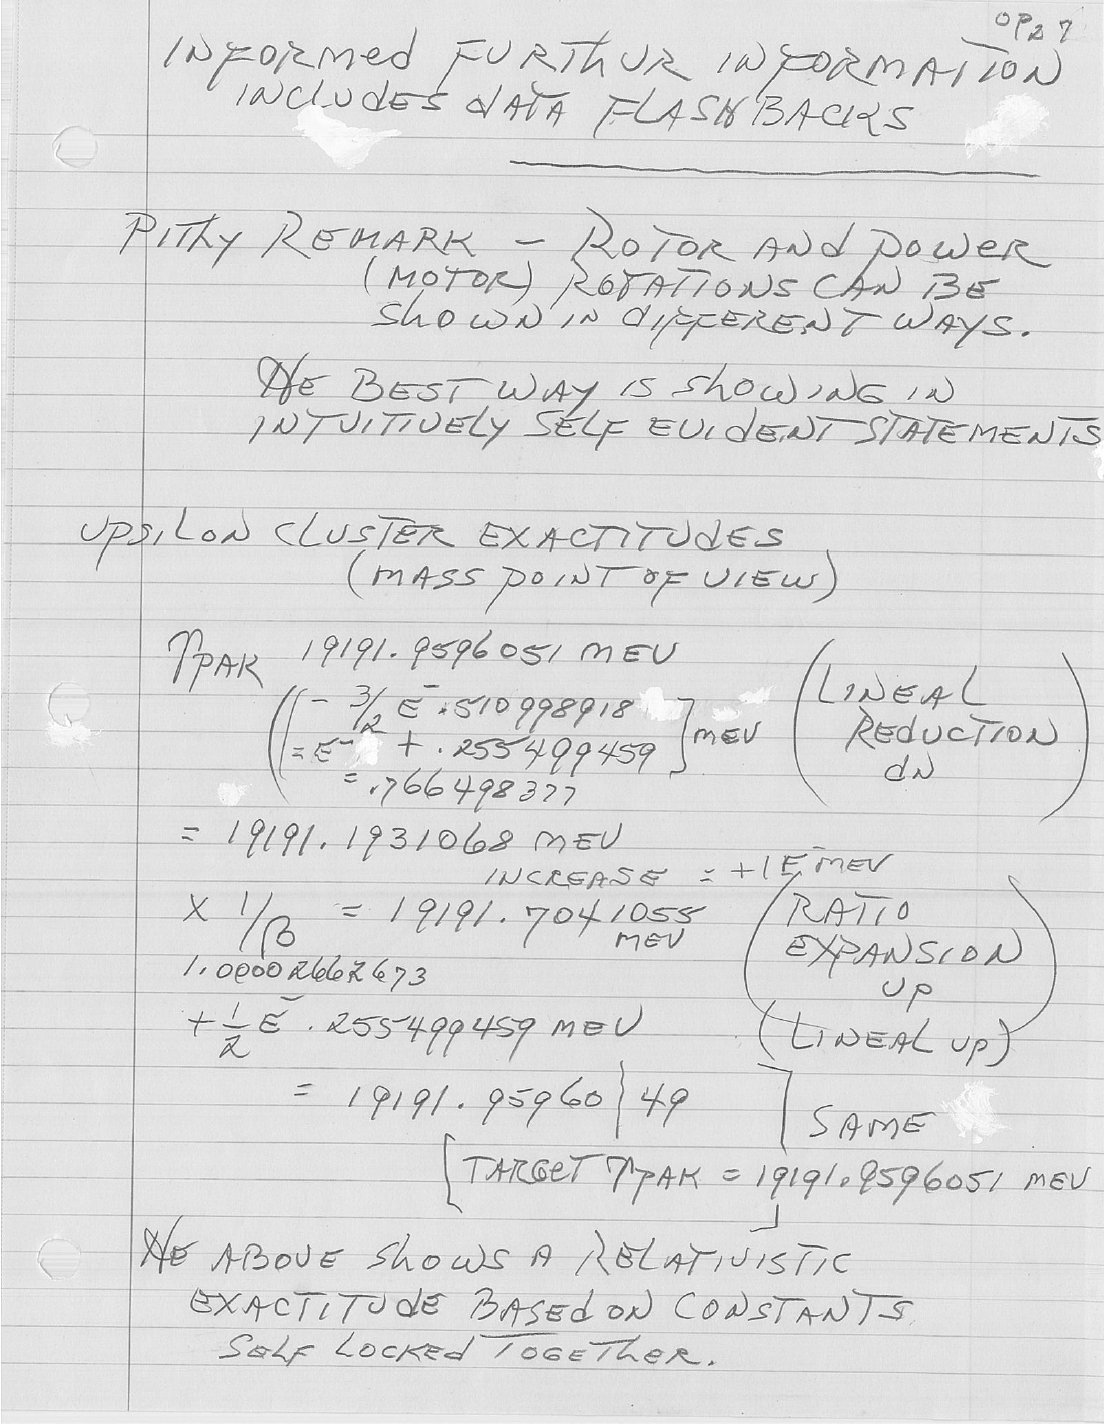 OP27
INFORMED FURTHUR INFORMATION
INCLUDES DATA FLASHBACKS
PITHY REMARK – ROTOR AND POWER
(MOTOR) ROTATIONS CAN BE
SHOWN IN DIFFERENT WAYS.
THE BEST WAY IS SHOWING IN
INTUITIVELY SELF EVIDENT STATEMENTS
UPSILON CLUSTER EXACTITUDES
(MASS POINT OF VIEW)
ϒPAK 19191.9596051 MEV
((- 3/2 E⁻ .510998918
= E⁻ + .255499459] MEV
= .766498377
(LINEAL
REDUCTION
DN)
= 19191.1931068 MEV
INCREASE = +1 E⁻ MEV
X 1/β = 19191.7041055
MEV
1.00002662673
(RATIO
EXPANSION
UP)
+ 1/2 E⁻ .255499459 MEV (LINEAL UP)
= 19191.95960|49 ] SAME
[TARGET ϒPAK = 19191.9596051 MEV
THE ABOVE SHOWS A RELATIVISTIC
EXACTITUDE BASED ON CONSTANTS
SELF LOCKED TOGETHER.